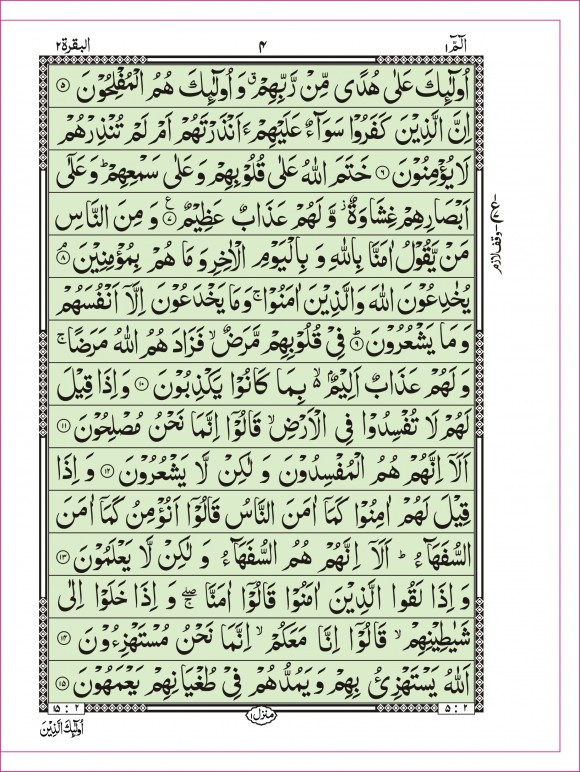 الٓمّٓ ۱
۴
البقرة ۲
اُولٰٓئِكَ عَلٰى هُدًى مِّنْ رَّبِّهِمْ ۗ وَ اُولٰٓئِكَ هُمُ الْمُفْلِحُوْنَ ۵
اِنَّ الَّذِيْنَ كَفَرُوْا سَوَآءٌ عَلَيْهِمْ ءَاَنْذَرْتَهُمْ اَمْ لَمْ تُنْذِرْهُمْ
لَا يُؤْمِنُوْنَ ۶ خَتَمَ اللّٰهُ عَلٰى قُلُوْبِهِمْ وَ عَلٰى سَمْعِهِمْ ؕ وَ عَلٰٓى
اَبْصَارِهِمْ غِشَاوَةٌ ؗ وَّ لَهُمْ عَذَابٌ عَظِيْمٌ ۷ وَ مِنَ النَّاسِ
مَنْ يَّقُوْلُ اٰمَنَّا بِاللّٰهِ وَ بِالْيَوْمِ الْاٰخِرِ وَ مَا هُمْ بِمُؤْمِنِيْنَ ۘ ۸
يُخٰدِعُوْنَ اللّٰهَ وَ الَّذِيْنَ اٰمَنُوْا ۚ وَ مَا يَخْدَعُوْنَ اِلَّاۤ اَنْفُسَهُمْ
وَ مَا يَشْعُرُوْنَ ؕ ۹ فِيْ قُلُوْبِهِمْ مَّرَضٌ ۙ فَزَادَهُمُ اللّٰهُ مَرَضًا ۚ
وَ لَهُمْ عَذَابٌ اَلِيْمٌۢ ۙ۬ بِمَا كَانُوْا يَكْذِبُوْنَ ۱۰ وَ اِذَا قِيْلَ
لَهُمْ لَا تُفْسِدُوْا فِي الْاَرْضِ ۙ قَالُوْۤا اِنَّمَا نَحْنُ مُصْلِحُوْنَ ۱۱
اَلَاۤ اِنَّهُمْ هُمُ الْمُفْسِدُوْنَ وَ لٰكِنْ لَّا يَشْعُرُوْنَ ۱۲ وَ اِذَا
قِيْلَ لَهُمْ اٰمِنُوْا كَمَاۤ اٰمَنَ النَّاسُ قَالُوْۤا اَنُؤْمِنُ كَمَاۤ اٰمَنَ
السُّفَهَآءُ ؕ اَلَاۤ اِنَّهُمْ هُمُ السُّفَهَآءُ وَ لٰكِنْ لَّا يَعْلَمُوْنَ ۱۳
وَ اِذَا لَقُوا الَّذِيْنَ اٰمَنُوْا قَالُوْۤا اٰمَنَّا ۖۚ وَ اِذَا خَلَوْا اِلٰى
شَيٰطِيْنِهِمْ ۙ قَالُوْۤا اِنَّا مَعَكُمْ ۙ اِنَّمَا نَحْنُ مُسْتَهْزِءُوْنَ ۱۴
اَللّٰهُ يَسْتَهْزِئُ بِهِمْ وَ يَمُدُّهُمْ فِيْ طُغْيَانِهِمْ يَعْمَهُوْنَ ۱۵
وقف لازم
۲ : ۵
منزل ۱
۲ : ۱۵
اُولٰٓئِكَ الَّذِيْنَ